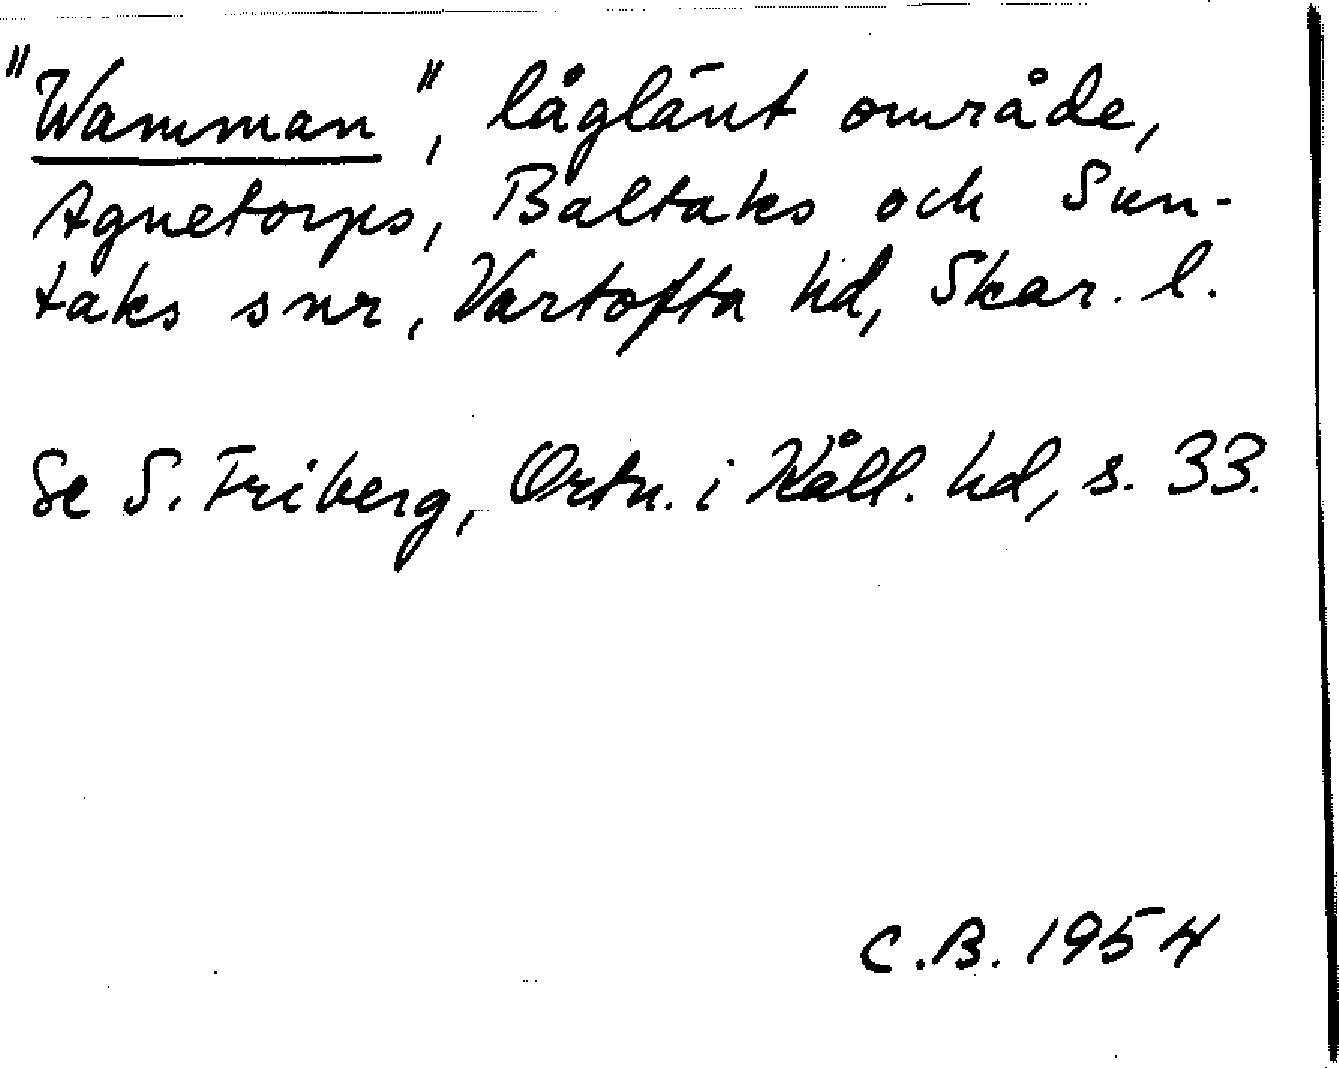 "Wamman", låglänt område,
Agnetorps, Baltaks och Sun-
taks snr, Vartofta hd, Skar. l.
Se S. Friberg, Ortn. i Kåll. hd, s. 33.
C.B. 1954